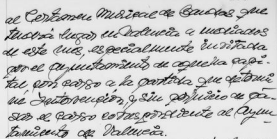 al Certamen Musical de Bandas que
tendrá lugar en Valencia a mediados
de este mes, especialmente invitada
por el Ayuntamiento de aquella capi-
tal con cargo a la partida que determi-
ne Intervención y sin perjuicio de
el cargo correspondiente al Ayun-
tamiento de Valencia.